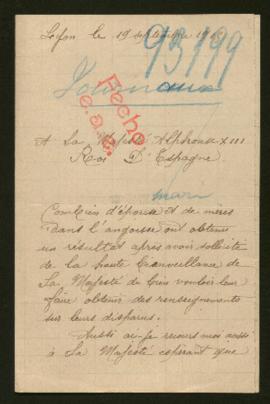 le 19 septembre
93199
Journaux
Fecho
e.a.e.
A Sa Majesté Alphonse XIII
Roi D'Espagne
mari
Combien d'épouse et de mères
dans l'angoisse ont obtenu
un résultat après avoir sollicité
de la haute bienveillance de
Sa Majesté de bien vouloir leur
faire obtenir des renseignements
sur leurs disparus.
Aussi ai-je recours moi aussi
à Sa Majesté espérant que